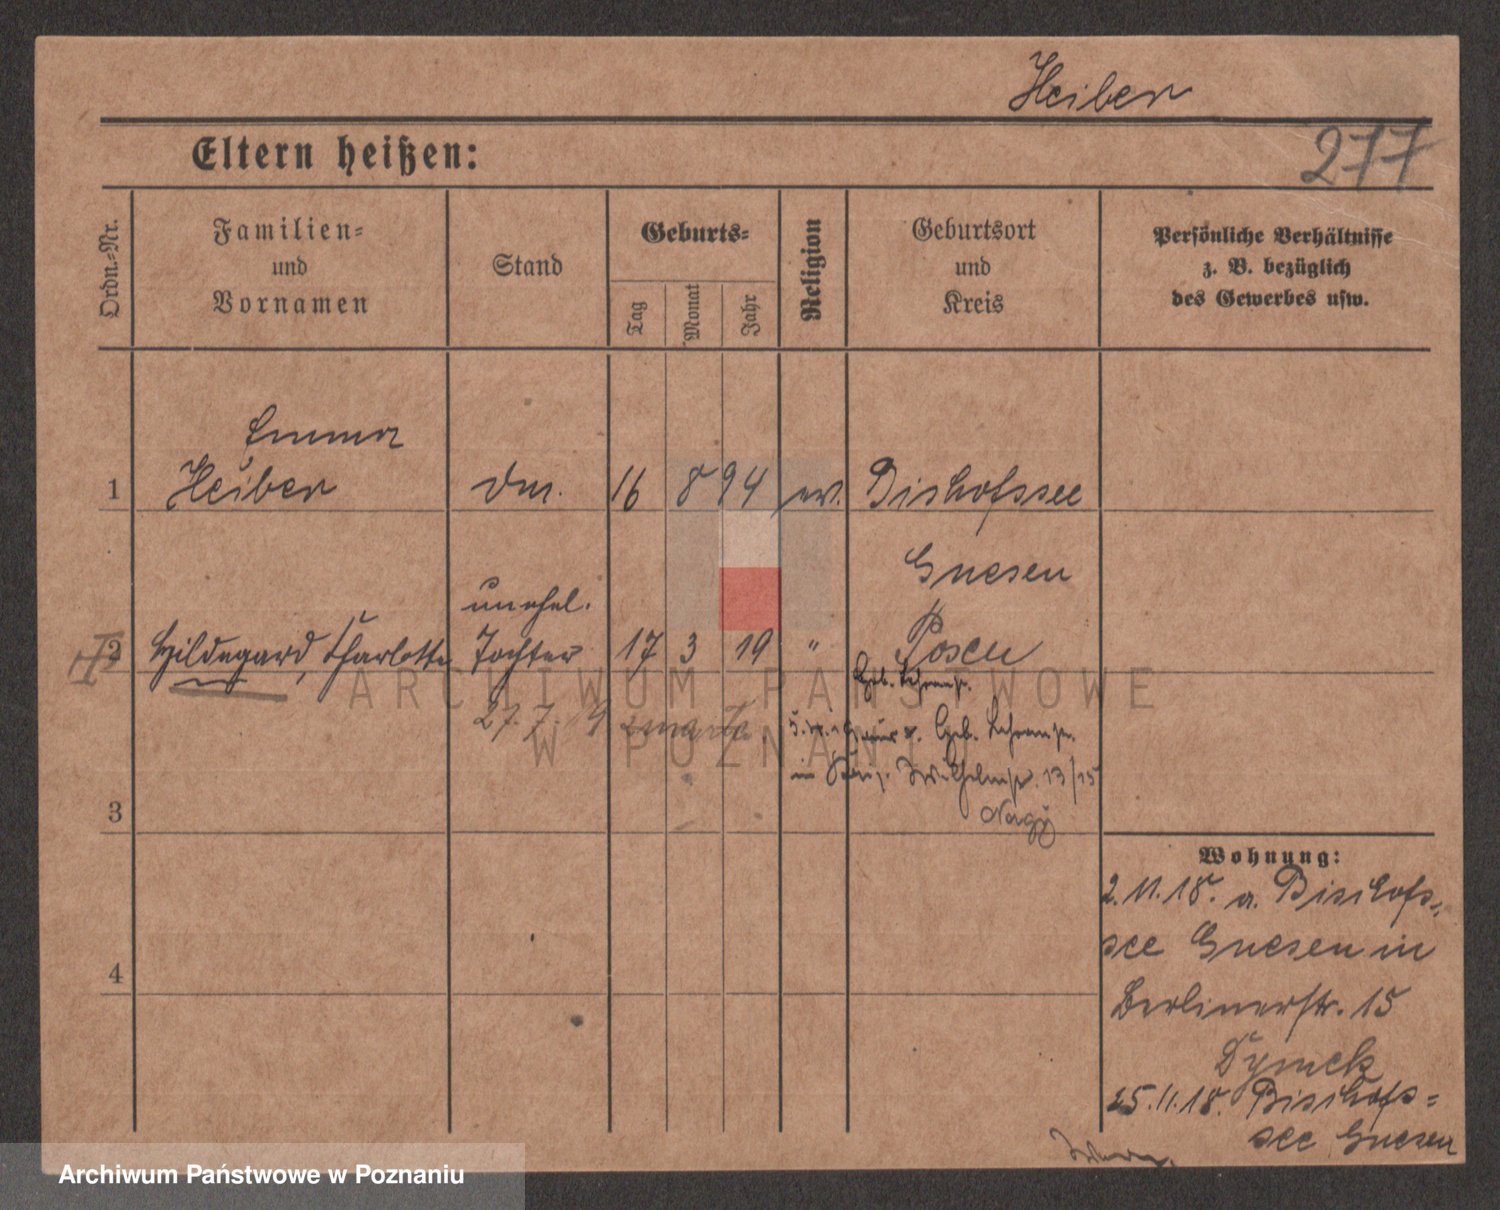 Heiber
277
Eltern heißen:
Ordn.-Nr.
Familien-
und
Vornamen
Stand
Geburts-
Tag
Monat
Jahr
Religion
Geburtsort
und
Kreis
Persönliche Verhältnisse
z. B. bezüglich
des Gewerbes usw.
Emma
1 Heiber Dm. 16 8 94 ev. Bischofssee
Gnesen
unehel.
2 Hildegard, Charlotte Tochter 17 3 19 " Posen
27. 7. 19
13/15
3
Nagy
Wohnung:
2.11.18. a. Bischofs-
see Gnesen in
Berlinerstr. 15
Dymek
25.11.18. Bischofs-
see Gnesen
4
ARCHIWUM PAŃSTWOWE
W POZNANIU
Archiwum Państwowe w Poznaniu